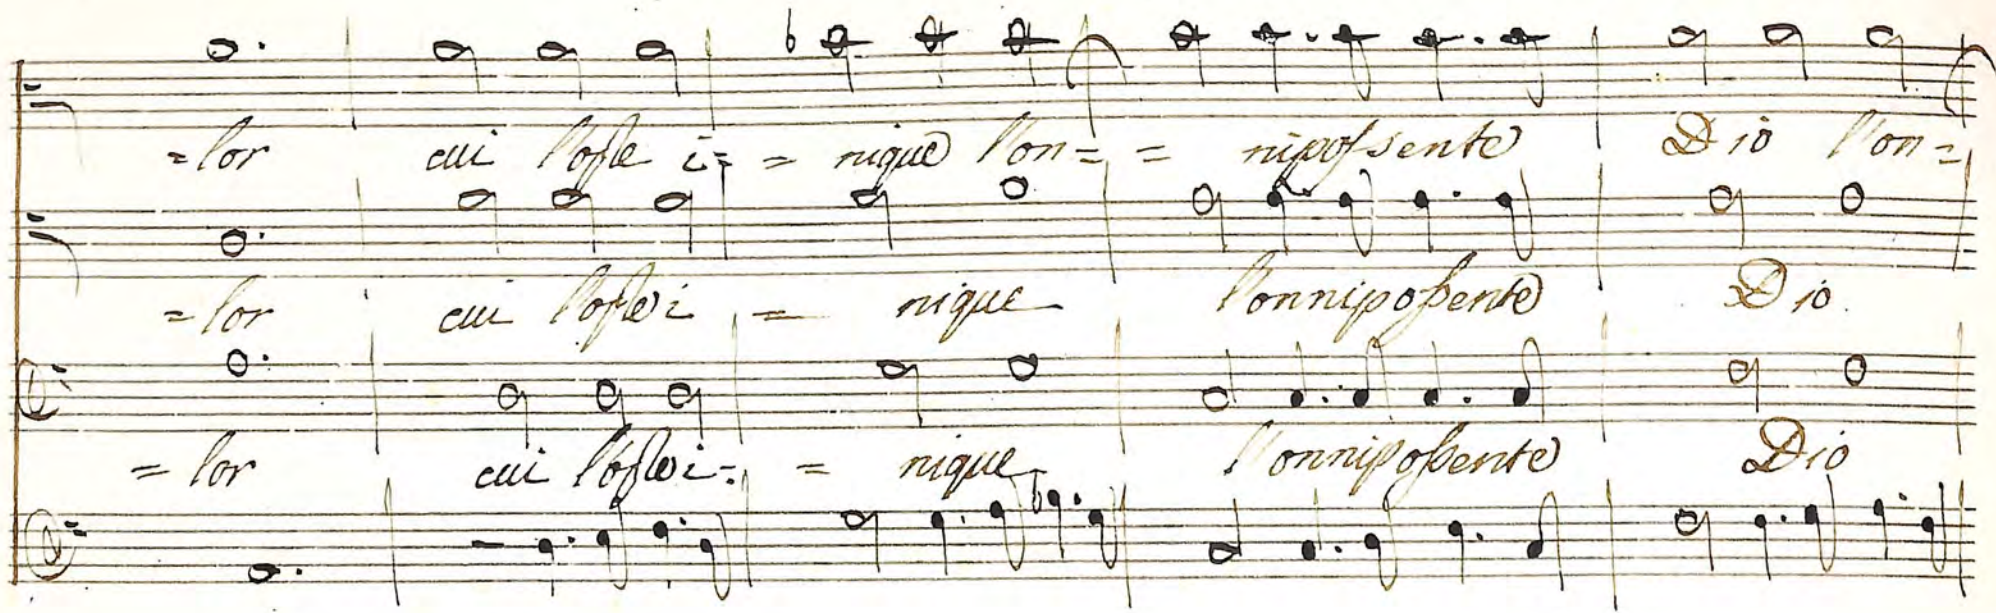 =lor cui l'oste i= = nique l'on= = nipossente Dio l'on=
=lor cui l'oste i = nique l'onnipossente Dio.
=lor cui l'oste i= = nique l'onnipossente Dio